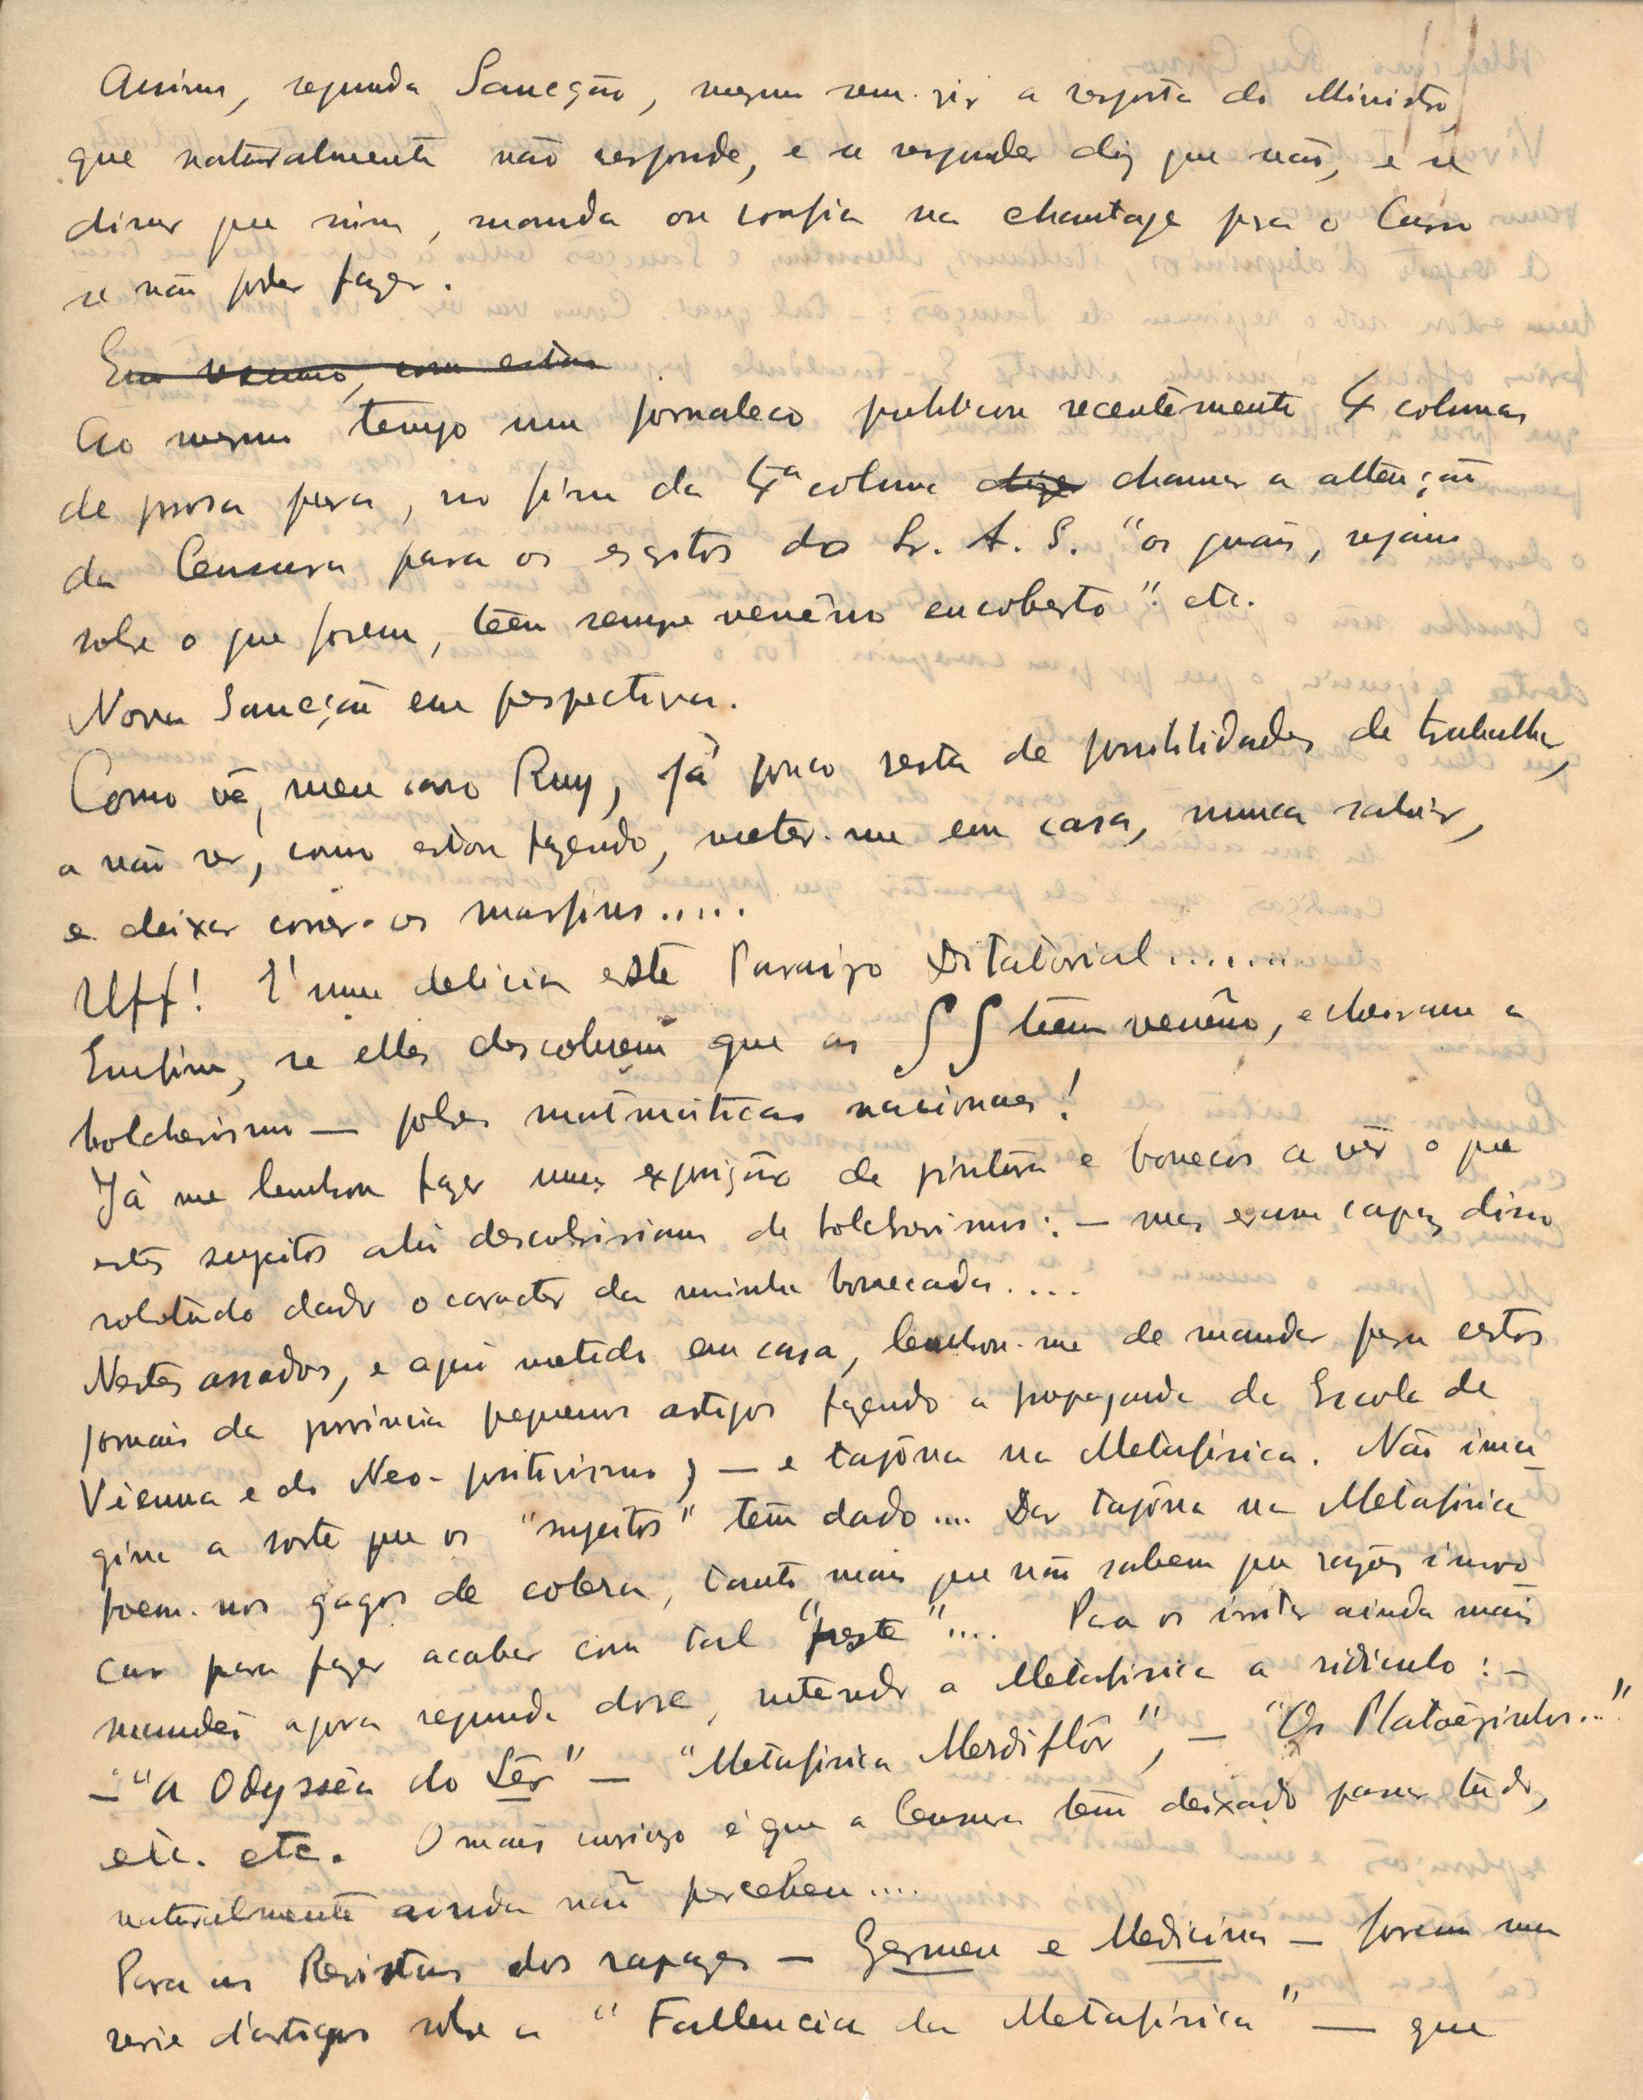 Assim, segunda Sancção, mesmo sem vir a resposta do Ministro
que naturalmente não responde, e se responder diz que não, e se
disser que sim, manda ou confia na chantage pra o Curso
se não poder fazer.
Em resumo, com estas
Ao mesmo tempo um jornaleco publicou recentemente 4 colunas
de prosa para, no fim da 4ª coluna chamar a attenção
da Censura para os escritos do Sr. A. S. "os quais, sejam
sobre o que forem, têem sempre venêno encoberto" etc.
Nova Sancção em perspectiva.
Como vê, meu caro Ruy, já pouco resta de possibilidades de trabalhar,
a não ser, como estou fazendo, meter-me em casa, nunca sahir,
e deixar correr os marfins.....
Uff! É uma delicia este Paraizo Ditatorial.......
Emfim, se elles descobrem que as ∫∫ têem venêno, e cheiram a
bolchevismo — pobres matmáticas nacionaes!
Já me lembrou fazer uma exposição de pintura e bonecos a vêr o que
estes sujeitos ahi descobririam de bolchevismo: — mas eram capaz disso
sobretudo dado o caracter da minha bonecada....
Nestes assados, e aqui metido em casa, lembrou-me de mandar para estes
jornais da provincia pequenos artigos fazendo a propaganda da Escola de
Vienna e do Neo-positivismo, — e tapôna na Metafisica. Não ima
gina a sorte que os "sujeitos" têm dado.... Dar tapôna na Metafisica
poem-nos gagos de colera, tanto mais que não sabem que razões invo
car para fazer acabar com tal "peste".... Para os irritar ainda mais
mandei agora segunda dose, metendo a Metafisica a ridiculo: —
— "A Odysséa do Sêr" — "Metafisica Merdiflôr", — "Os Platãezinhos..."
etc. etc. O mais curioso é que a Censura têm deixado passar tudo,
naturalmente ainda não percebeu....
Para as Revistas dos rapazes — Germen e Medicina — foram uma
serie d'artigos sobre a "Fallencia da Metafisica" — que